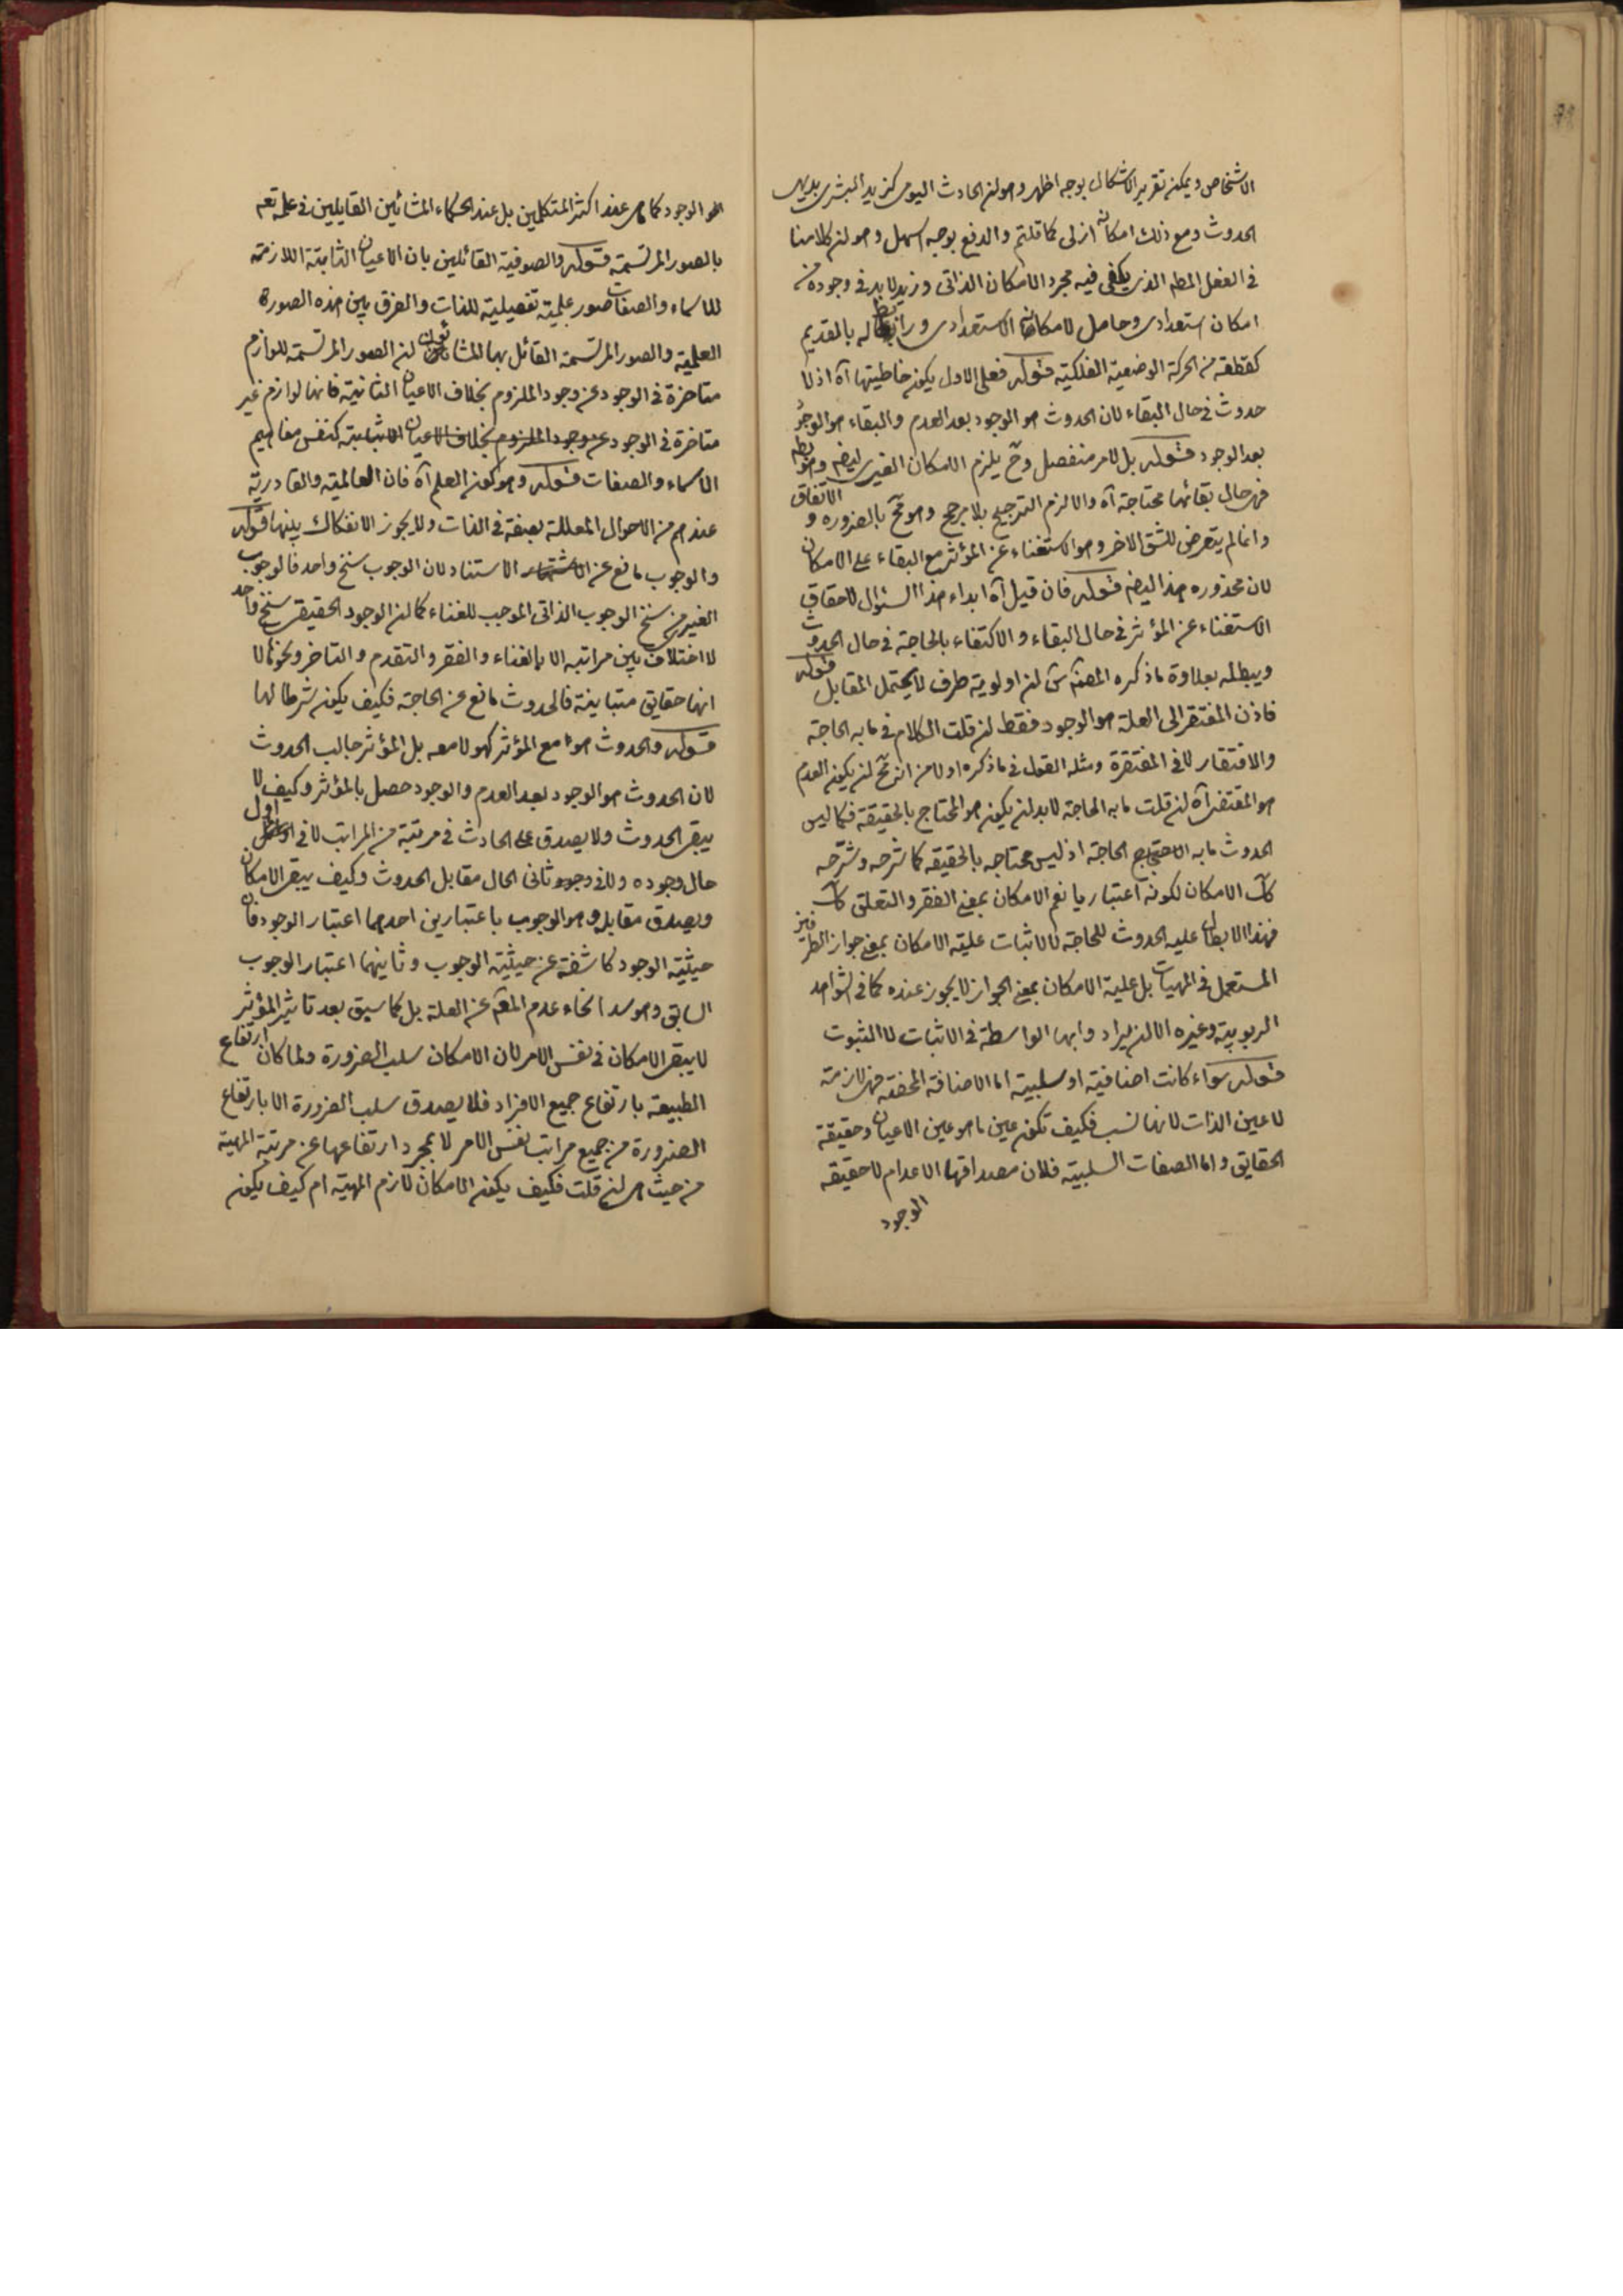 الاشخاص ويمكن تقرير الاشكال بوجه اظهر وهو ان الحادث اليومى كزيد البشرى بديهى
الحدوث ومع ذلك امكانه ازلى كما قلتم والدفع بوجه اسهل وهو ان كلامنا
فى الفعل المطم الذى يكفى فيه مجرد الامكان الذاتى وزيد لا بد فى وجوده من
امكان استعدادى وحامل لامكانه الاستعدادى ورابط له بالقديم
كقطعة من الحركة الوضعية الفلكية قوله فعلى الاول يكون خاطيتها آه اذ لا
حدوث فى حال البقاء لان الحدوث هو الوجود بعد العدم والبقاء هو الوجود
بعد الوجود قوله بل لامر منفصل وح يلزم الامكان الغيرى ايضا وهو بط
فهى حال بقائها محتاجة آه والا لزم الترجيح بلا مرجح وهو مح بالضرورة و الاتفاق
وانما لم يتعرض للشق الاخر وهو الاستغناء عن المؤثر مع البقاء على الامكان
لان محذوره هذا ايضا قوله فان قيل آه ابداء هذا السئوال لاحقاق
الاستغناء عن المؤثر فى حال البقاء والاكتفاء بالحاجة فى حال الحدوث
ويبطله بعلاوة ما ذكره المصنف ان اولوية طرف لا يحتمل المقابل قوله
فاذن المفتقر الى العلة هو الوجود فقط ان قلت الكلام فى ما به الحاجة
والافتقار لا فى المفتقرة ومثله القول فى ما ذكره اولا من انه مح ان يكون العدم
هو المقتضى آه ان قلت ما به الحاجة لا بد ان يكون هو المحتاج بالحقيقة فكما ليس
الحدوث ما به الحاجة اذ ليس محتاجه بالحقيقه كما شرحه وشرحه
كك الامكان لكونه اعتباريا نعم الامكان بمعنى الفقر والتعلق كك
فهذا لابطال علية الحدوث للحاجة لا لاثبات علية الامكان بمعنى جواز الطرفين
المستعمل فى المهيات بل علية الامكان بمعنى الجواز لا يجوز عنده كما فى الشواهد
الربوبية وغيره الا ان يراد وابها الواسطة فى الاثبات لا الثبوت
قوله سواء كانت اضافية او سلبية اما الاضافة المحضة فهى لازمة
لا عين الذات لانها نسب فكيف تكون عين ما هو عين الاعيان وحقيقة
الحقايق واما الصفات السلبية فلان مصداقها الاعدام لا حقيقة
الوجود
الوجود كما هى عند اكثر المتكلمين بل عند الحكماء المشائين القايلين فى علمه تعم
بالصور المرتسمة قوله والصوفية القائلين بان الاعيان الثابتة اللازمة
للاسماء والصفات صور علمية تفصيلية للذات والفرق بين هذه الصورة
العلمية والصور المرتسمة القائل بها المشائون ان الصور المرتسمة للوازم
متاخرة فى الوجود عن وجود الملزوم بخلاف الاعيان الثانية فانها لوازم غير
متاخرة فى الوجود عن وجود الملزوم بخلاف الاعيان الثابتة كنفس مفاهيم
الاسماء والصفات قوله وهو كون العلم آه فان العالمية والقادرية
عندهم من الاحوال المعللة بصفة فى الذات ولا يجوز الانفكاك بينها قوله
والوجوب مانع عن الاستناد لان الوجوب سنخ واحد فالوجوب
الغيرى من سنخ الوجوب الذاتى الموجب للغناء كما ان الوجود الحقيقى سنخ واحد
لا اختلاف بين مراتبه الا بالغناء والفقر والتقدم والتاخر ونحوها لا
انها حقايق متباينة فالحدوث مانع عن الحاجة فكيف يكون شرطا لها
قوله والحدوث هو ما مع المؤثر كهو لا معه بل المؤثر جالب الحدوث
لان الحدوث هو الوجود بعد العدم والوجود حصل بالمؤثر وكيف لا
يبقى الحدوث ولا يصدق على الحادث فى مرتبة من المراتب لا فى اول
حال وجوده ولا فى وجود ثانى الحال مقابل الحدوث وكيف يبقى الامكان
ويصدق مقابله وهو الوجوب باعتبارين احدهما اعتبار الوجود فان
حيثية الوجود كاشفة عن حيثية الوجوب وثانيهما اعتبار الوجوب
السابق وهو سد انحاء عدم المعلم عن العلة بل كما سيق بعد تاثير المؤثر
لا يبقى الامكان فى نفس الامر لان الامكان سلب الضرورة ولما كان ارتفاع
الطبيعة بارتفاع جميع الافراد فلا يصدق سلب الضرورة الا بارتفاع
الضرورة من جميع مراتب نفس الامر لا بمجرد ارتفاعها عن مرتبة المهية
من حيث هى ان قلت فكيف يكون الامكان لازم المهية ام كيف يكون